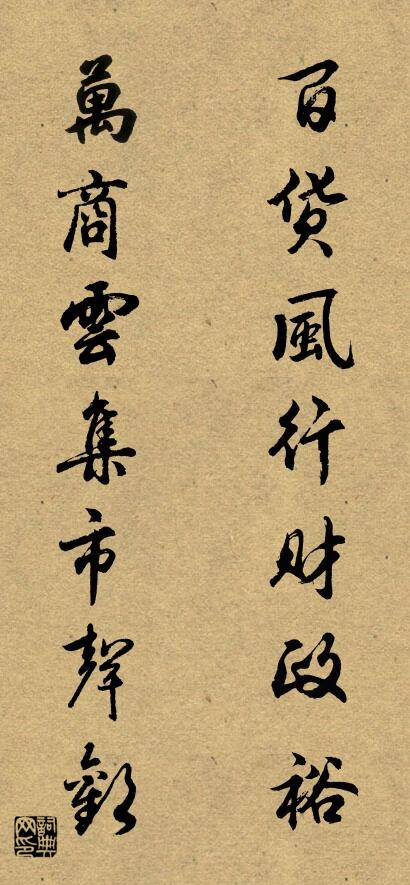 百貨風行財政裕
萬商雲集市聲歡
詞典网印